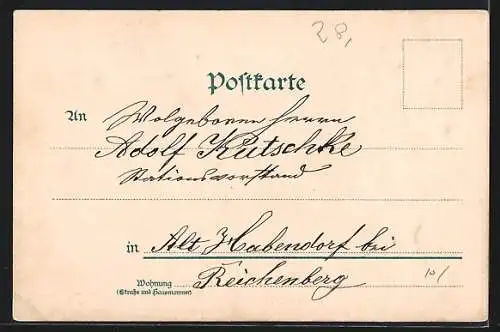 28,
Postkarte
An Wolgeboren Herrn
Adolf Kutschke
Stationsvorstand
in Alt Habendorf bei
Wohnung Reichenberg
(Straße und Hausnummer)
10/